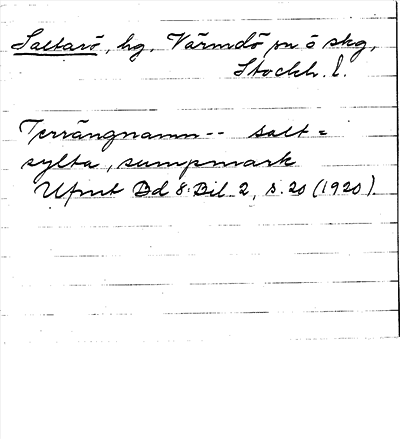 Saltarö, hg, Värmdö sn ö skg,
Stockh. l.
Terrängnamn -- salt =
sylta, sumpmark
Ufmt Bd 8: Bil 2, s. 20 (1920)